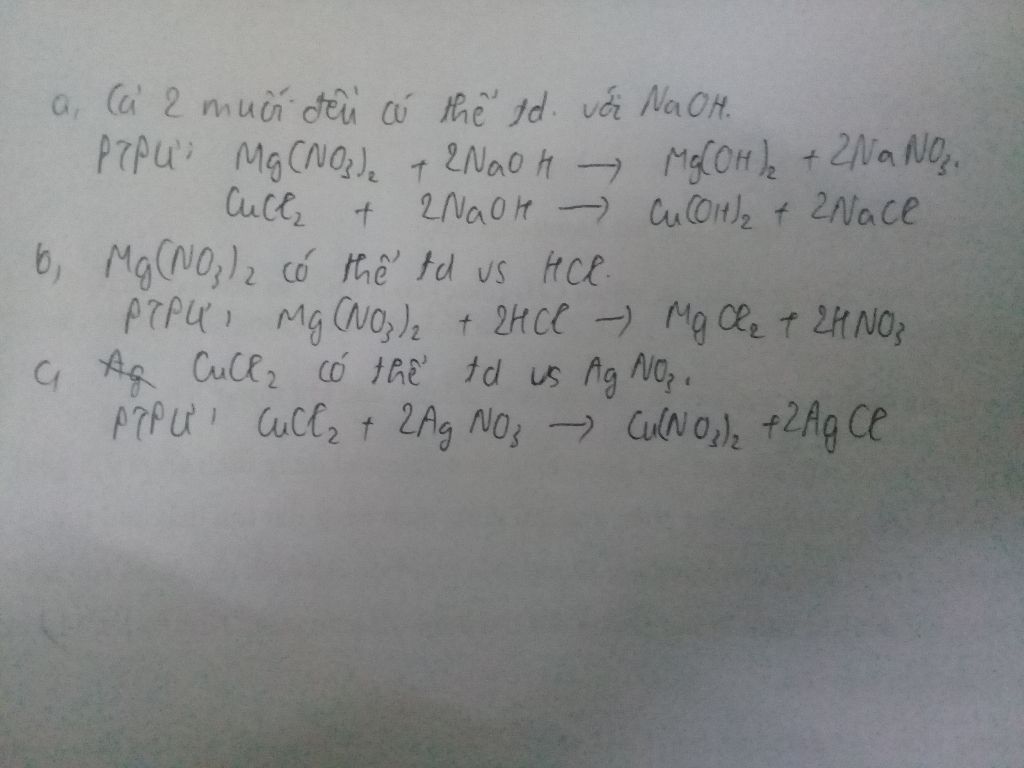 a, Cả 2 muối đều có thể td. với NaOH.
PTPƯ: Mg(NO₃)₂ + 2NaOH → Mg(OH)₂ + 2NaNO₃.
CuCl₂ + 2NaOH → Cu(OH)₂ + 2NaCl
b, Mg(NO₃)₂ có thể td vs HCl.
PTPƯ: Mg(NO₃)₂ + 2HCl → MgCl₂ + 2HNO₃
c, CuCl₂ có thể td vs AgNO₃.
PTPƯ: CuCl₂ + 2AgNO₃ → Cu(NO₃)₂ + 2AgCl